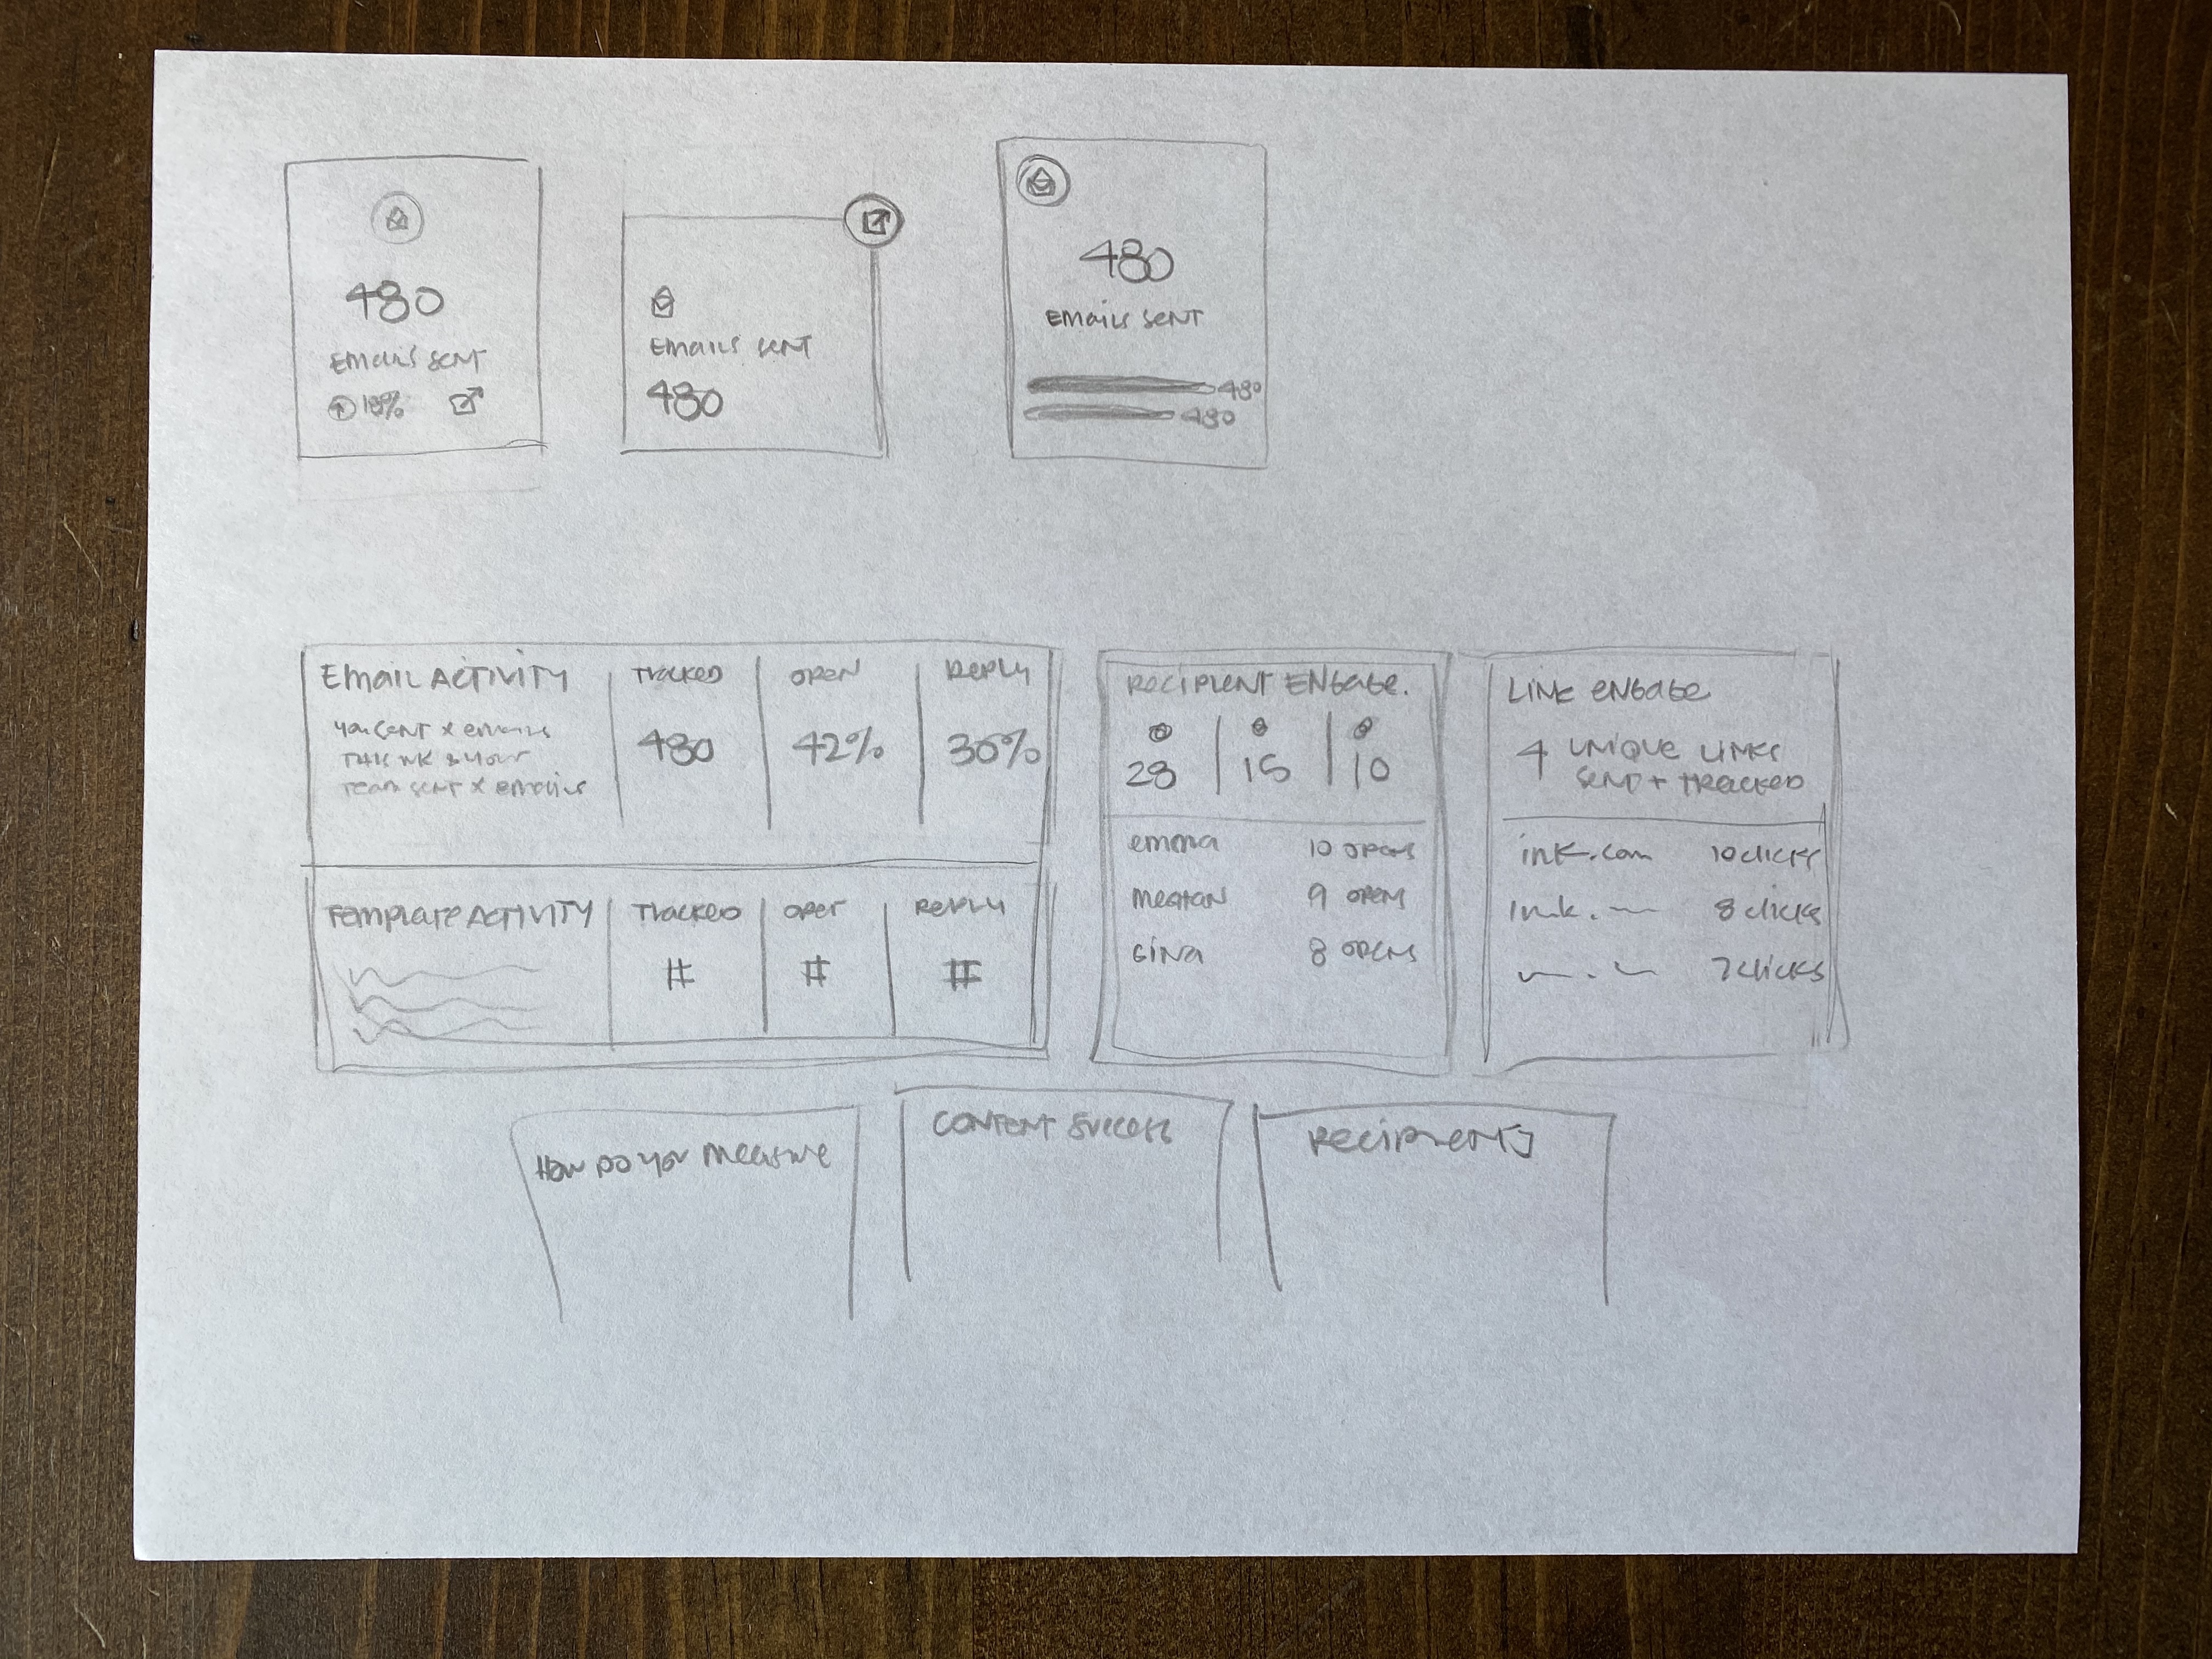 480
Emails sent
Emails sent
480
480
Emails sent
480
480
Email Activity
you sent x emails
this wk & your
team sent x emails
Tracked
480
open
42%
Reply
36%
Template Activity
Tracked
#
open
#
Reply
#
Recipient Engage.
28
15
10
emma 10 opens
meghan 9 opens
Gina 8 opens
Link engage
4 unique links
send + tracked
ink.com 10 clicks
8 clicks
7 clicks
How do you measure
Content success
Recipients